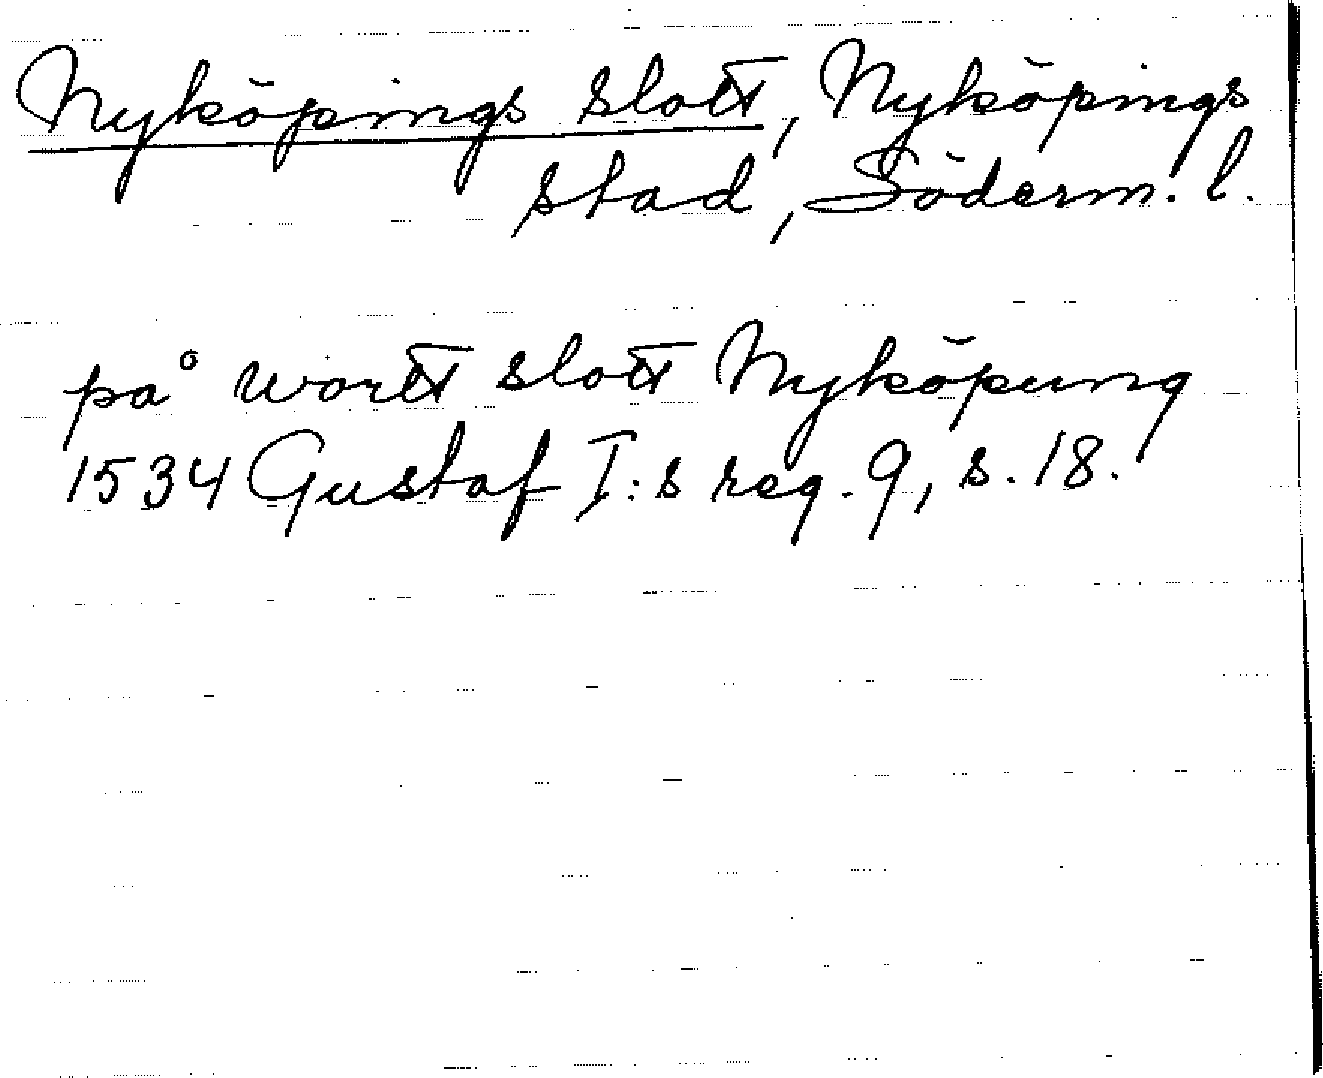 Nyköpings slott, Nyköpings
stad, Söderm. l.
på wortt slott Nyköpung
1534 Gustaf I:s reg. 9, s. 18.